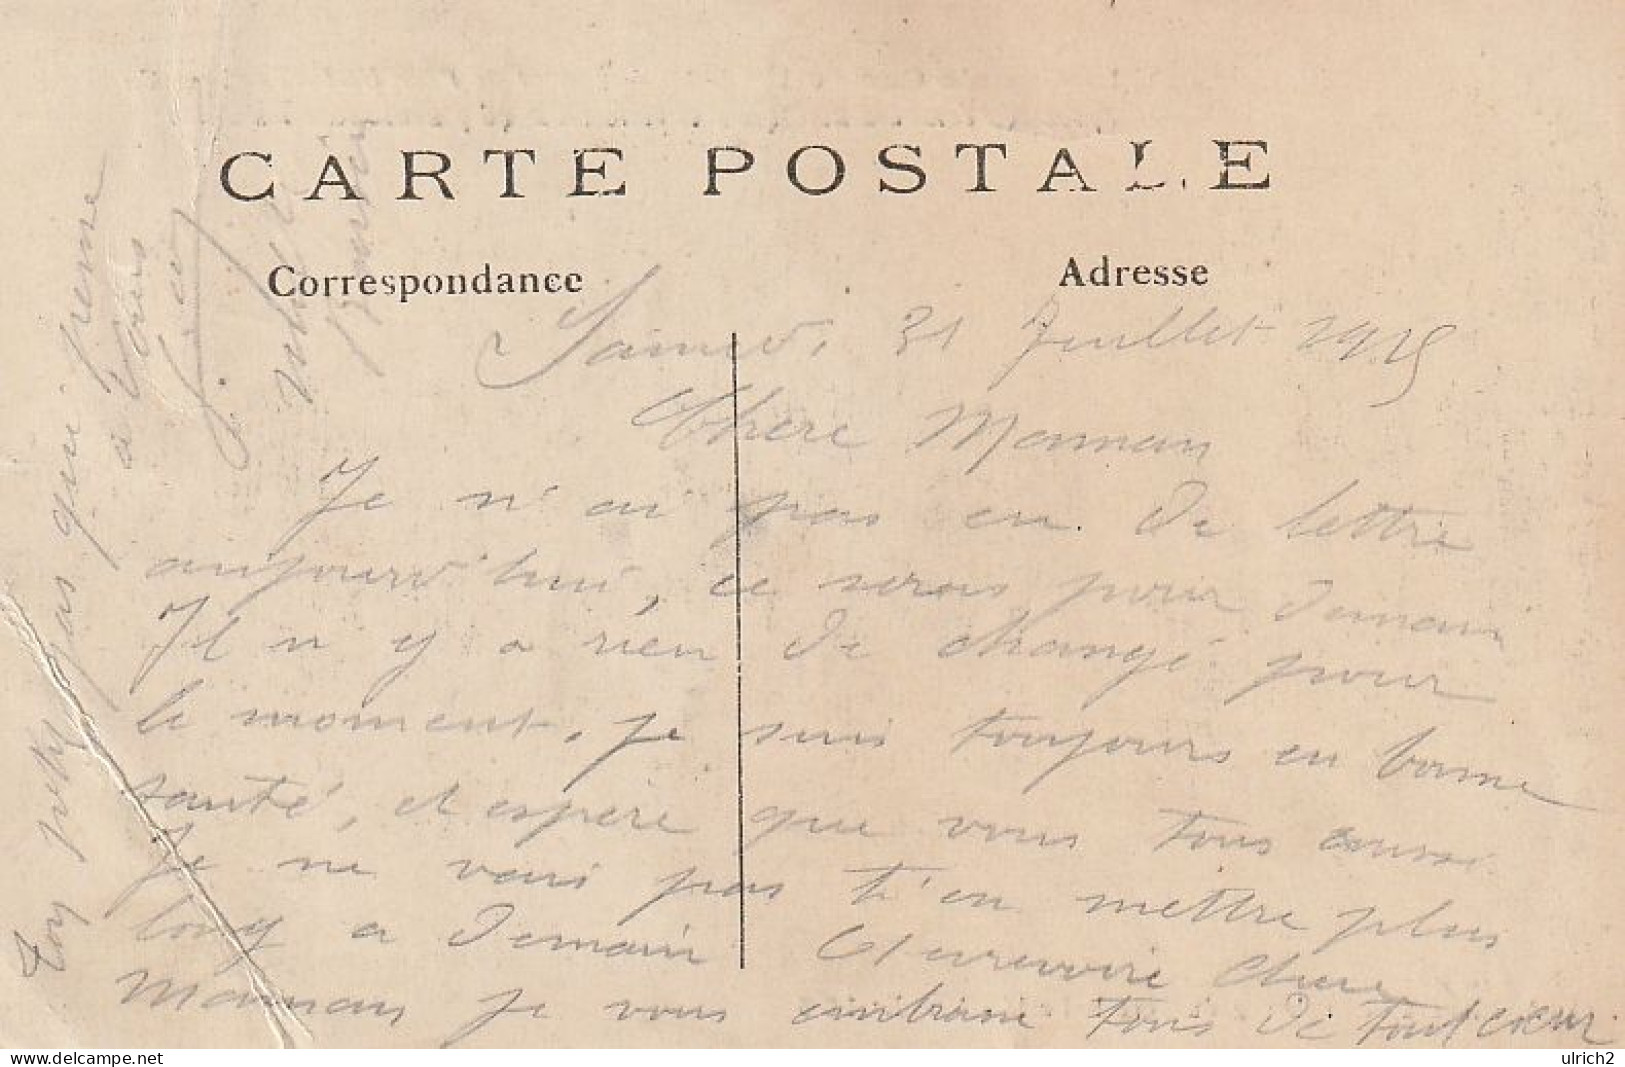 CARTE POSTALE
Correspondance
Adresse
Samedi 31 Juillet 1915
Chere Maman
Je n'ai pas eu de lettre
aujourd'hui, ce seras pour demain
Il n y a rien de changé pour
le moment, je suis toujours en bonne
santé, et espère que vous tous aussi
Je ne vais pas t'en mettre plus
long a demain Aurevoire Chere
Maman je vous embrasse tous de tout cœur
pas que
a Tours
ulrich2